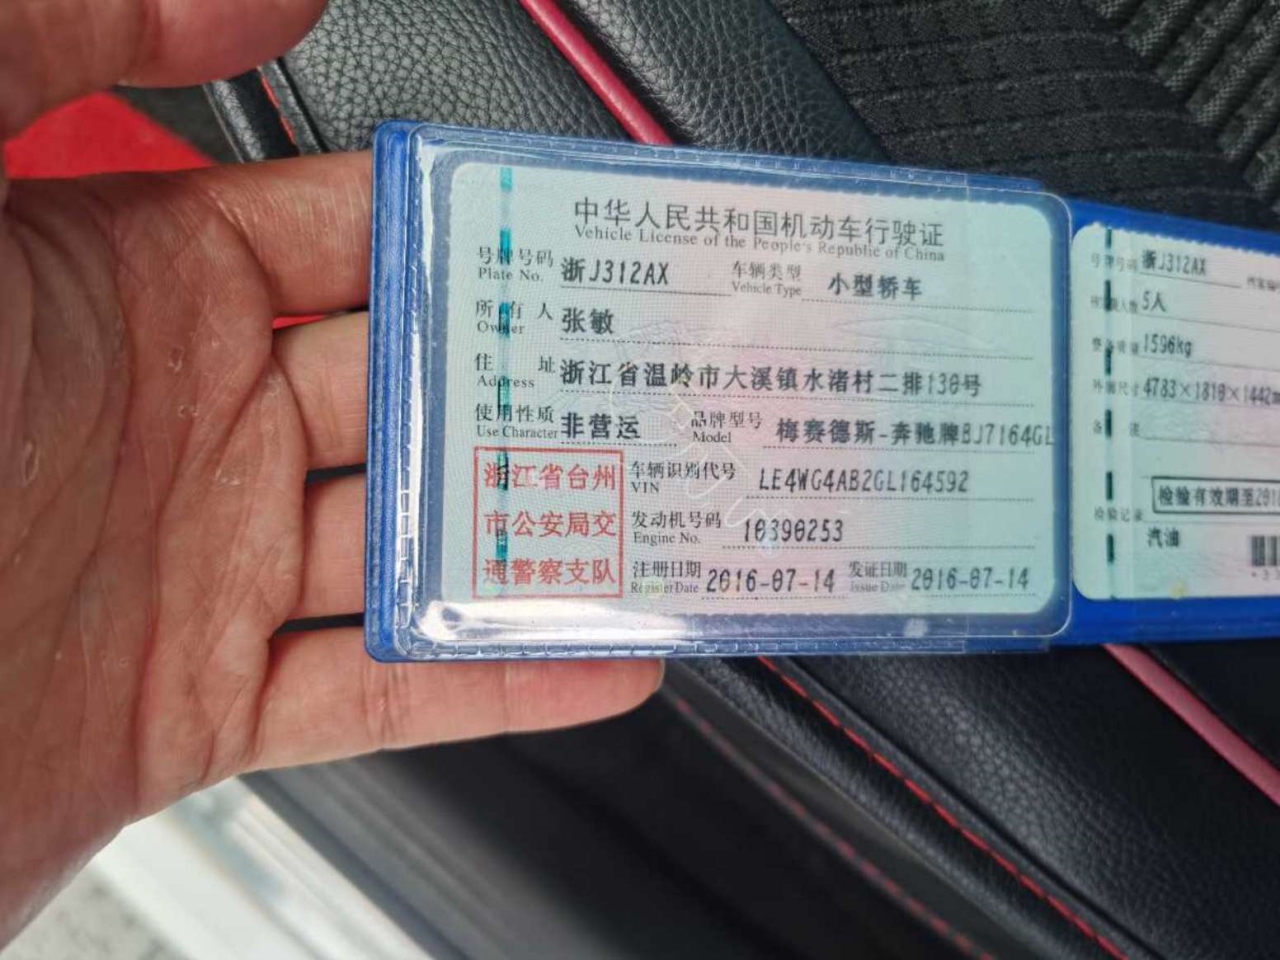 中华人民共和国机动车行驶证
Vehicle License of the People's Republic of China
号牌号码 浙J312AX 车辆类型 小型轿车
Plate No. Vehicle Type
所有人 张敏
Owner
住址 浙江省温岭市大溪镇水渚村二排130号
Address
使用性质 非营运 品牌型号 梅赛德斯-奔驰牌BJ7164GL
Use Character Model
浙江省台州
市公安局交
通警察支队
车辆识别代号 LE4WG4AB2GL164592
VIN
发动机号码 10390253
Engine No.
注册日期 2016-07-14 发证日期 2016-07-14
Register Date Issue Date
号牌号码 浙J312AX
5人
整备质量 1596kg
外廓尺寸 4783×1810×1442m
备注
检验有效期至201
检验记录
汽油